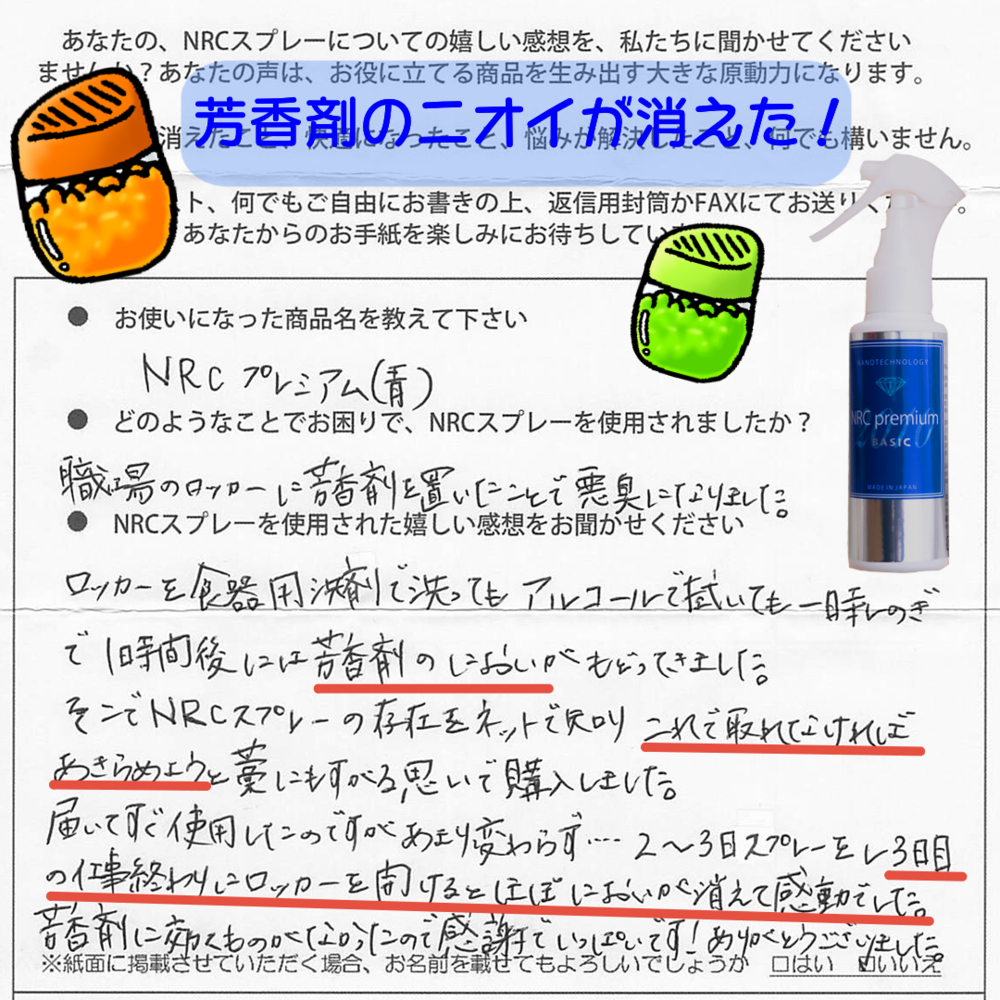 あなたの、NRCスプレーについての嬉しい感想を、私たちに聞かせてください
ませんか？あなたの声は、お役に立てる商品を生み出す大きな原動力になります。
芳香剤のニオイが消えた！
消えたこと、快適になったこと、悩みが解決したこと、何でも構いません。
ト、何でもご自由にお書きの上、返信用封筒かFAXにてお送りください。
あなたからのお手紙を楽しみにお待ちしてい
● お使いになった商品名を教えて下さい
NRCプレミアム(青)
● どのようなことでお困りで、NRCスプレーを使用されましたか？
職場のロッカーに芳香剤を置いたことで悪臭になりました。
● NRCスプレーを使用された嬉しい感想をお聞かせください
ロッカーを食器用洗剤で洗ってもアルコールで拭いても一時しのぎ
で1時間後には芳香剤のにおいがもどってきました。
そこでNRCスプレーの存在をネットで知り これで取れなければ
あきらめようと藁にもすがる思いで購入しました。
届いてすぐ使用したのですがあまり変わらず… 2〜3日スプレーをし3日目
の仕事終わりにロッカーを開けるとほぼにおいが消えて感動でした。
芳香剤に効くものがなかったので感謝でいっぱいです！ありがとうございました。
※紙面に掲載させていただく場合、お名前を載せてもよろしいでしょうか □はい ☑いいえ
NANOTECHNOLOGY
NRC premium
BASIC
MADE IN JAPAN